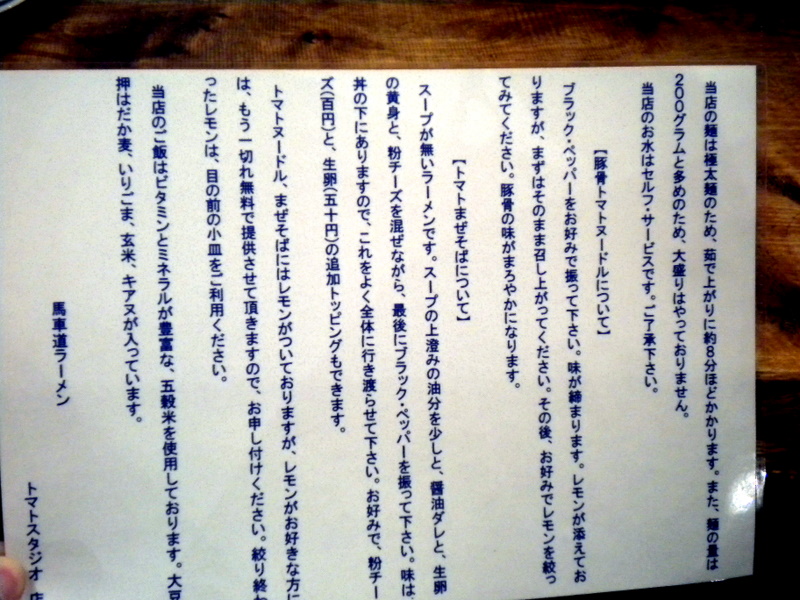 当店の麺は極太麺のため、茹で上がりに約8分ほどかかります。また、麺の量は
200グラムと多めのため、大盛りはやっておりません。
当店のお水はセルフ・サービスです。ご了承下さい。
【豚骨トマトヌードルについて】
ブラック・ペッパーをお好みで振って下さい。味が締まります。レモンが添えてお
りますが、まずはそのまま召し上がってください。その後、お好みでレモンを絞っ
てみてください。豚骨の味がまろやかになります。
【トマトまぜそばについて】
スープが無いラーメンです。スープの上澄みの油分を少しと、醤油ダレと、生卵
の黄身と、粉チーズを混ぜながら、最後にブラック・ペッパーを振って下さい。味は、
丼の下にありますので、これをよく全体に行き渡らせて下さい。お好みで、粉チー
ズ(百円)と、生卵(五十円)の追加トッピングもできます。
トマトヌードル、まぜそばにはレモンがついておりますが、レモンがお好きな方に
は、もう一切れ無料で提供させて頂きますので、お申し付けください。絞り終わ
ったレモンは、目の前の小皿をご利用ください。
当店のご飯はビタミンとミネラルが豊富な、五穀米を使用しております。大豆
押はだか麦、いりごま、玄米、キアヌが入っています。
馬車道ラーメン
トマトスタジオ 店